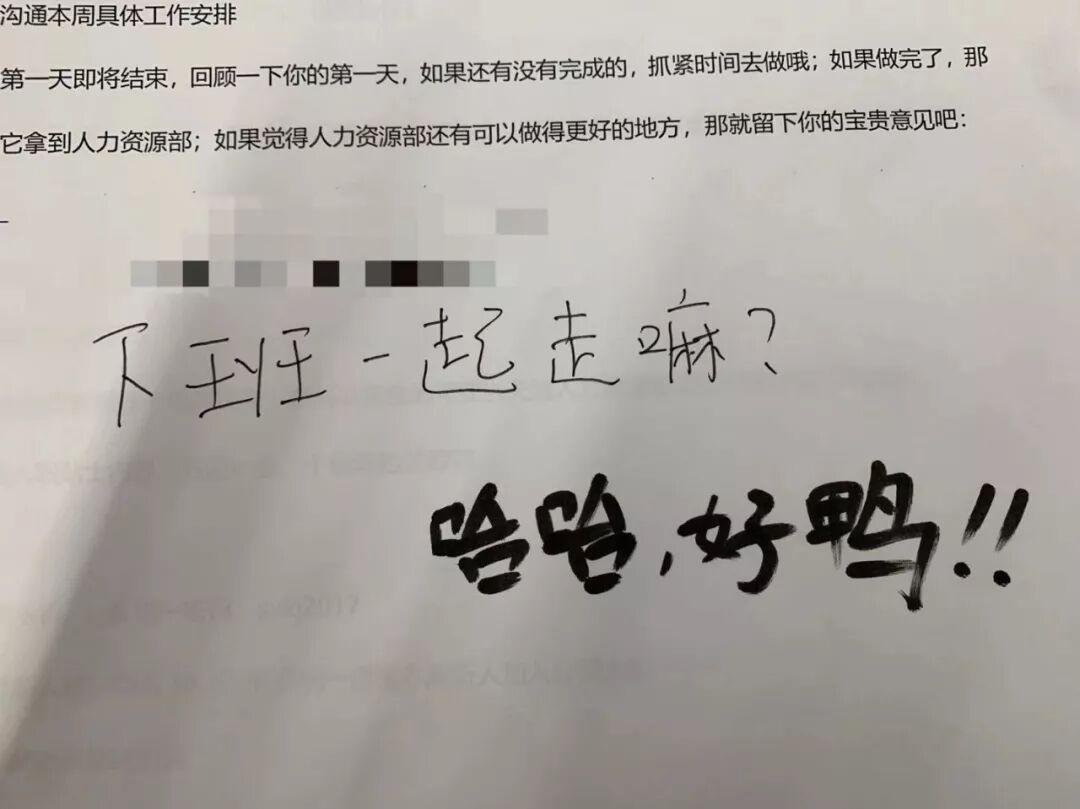 沟通本周具体工作安排
第一天即将结束，回顾一下你的第一天，如果还有没有完成的，抓紧时间去做哦；如果做完了，那
它拿到人力资源部；如果觉得人力资源部还有可以做得更好的地方，那就留下你的宝贵意见吧：
下班一起走嘛？
哈哈，好鸭!!